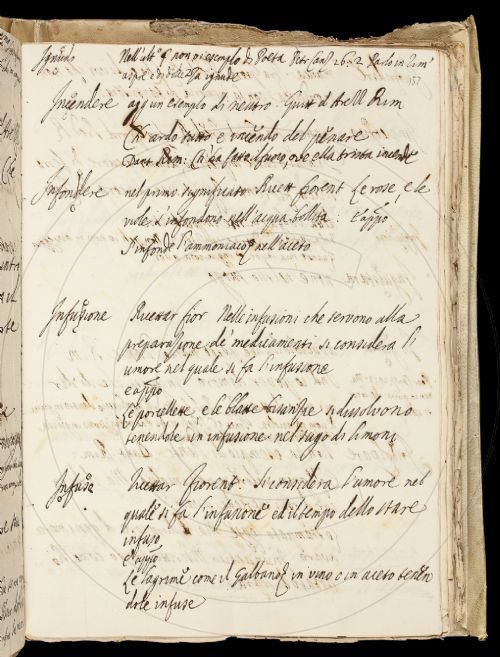 Ignudo nell'ult° non vi esemplo di Poeta Petr Canz 26. 2 Parlo in rim'
aspre e di dolcezza ignude
157
Incendere agg un esemplo di neutro. Guitt d'Arezz Rim
Ch'ardo tutto e incendo del penare
Dant Rim: Ch'ha fatto il fuoco, ove ella trista incende
Infondere nel primo significato Ricett fiorent Le rose, e le
viole s'infondono nell'acqua bollita: e app°
S'infonde l'ammoniaco nell'aceto
Infusione Ricettar fior Nelle infusioni che servono alla
preparazione de' medicamenti si considera l'
umore nel quale si fa l'infusione
e app°
Le porcellette, e le blatte bisanzie si dissolvono
tenendole in infusione nel sugo di limoni
Infusa Ricettar fiorent: Si considera l'umore nel
quale si fa l'infusione ed il tempo dello stare
infuso
e app°
Le lagrime come il Galbano in vino o in aceto tenen
dole infuse